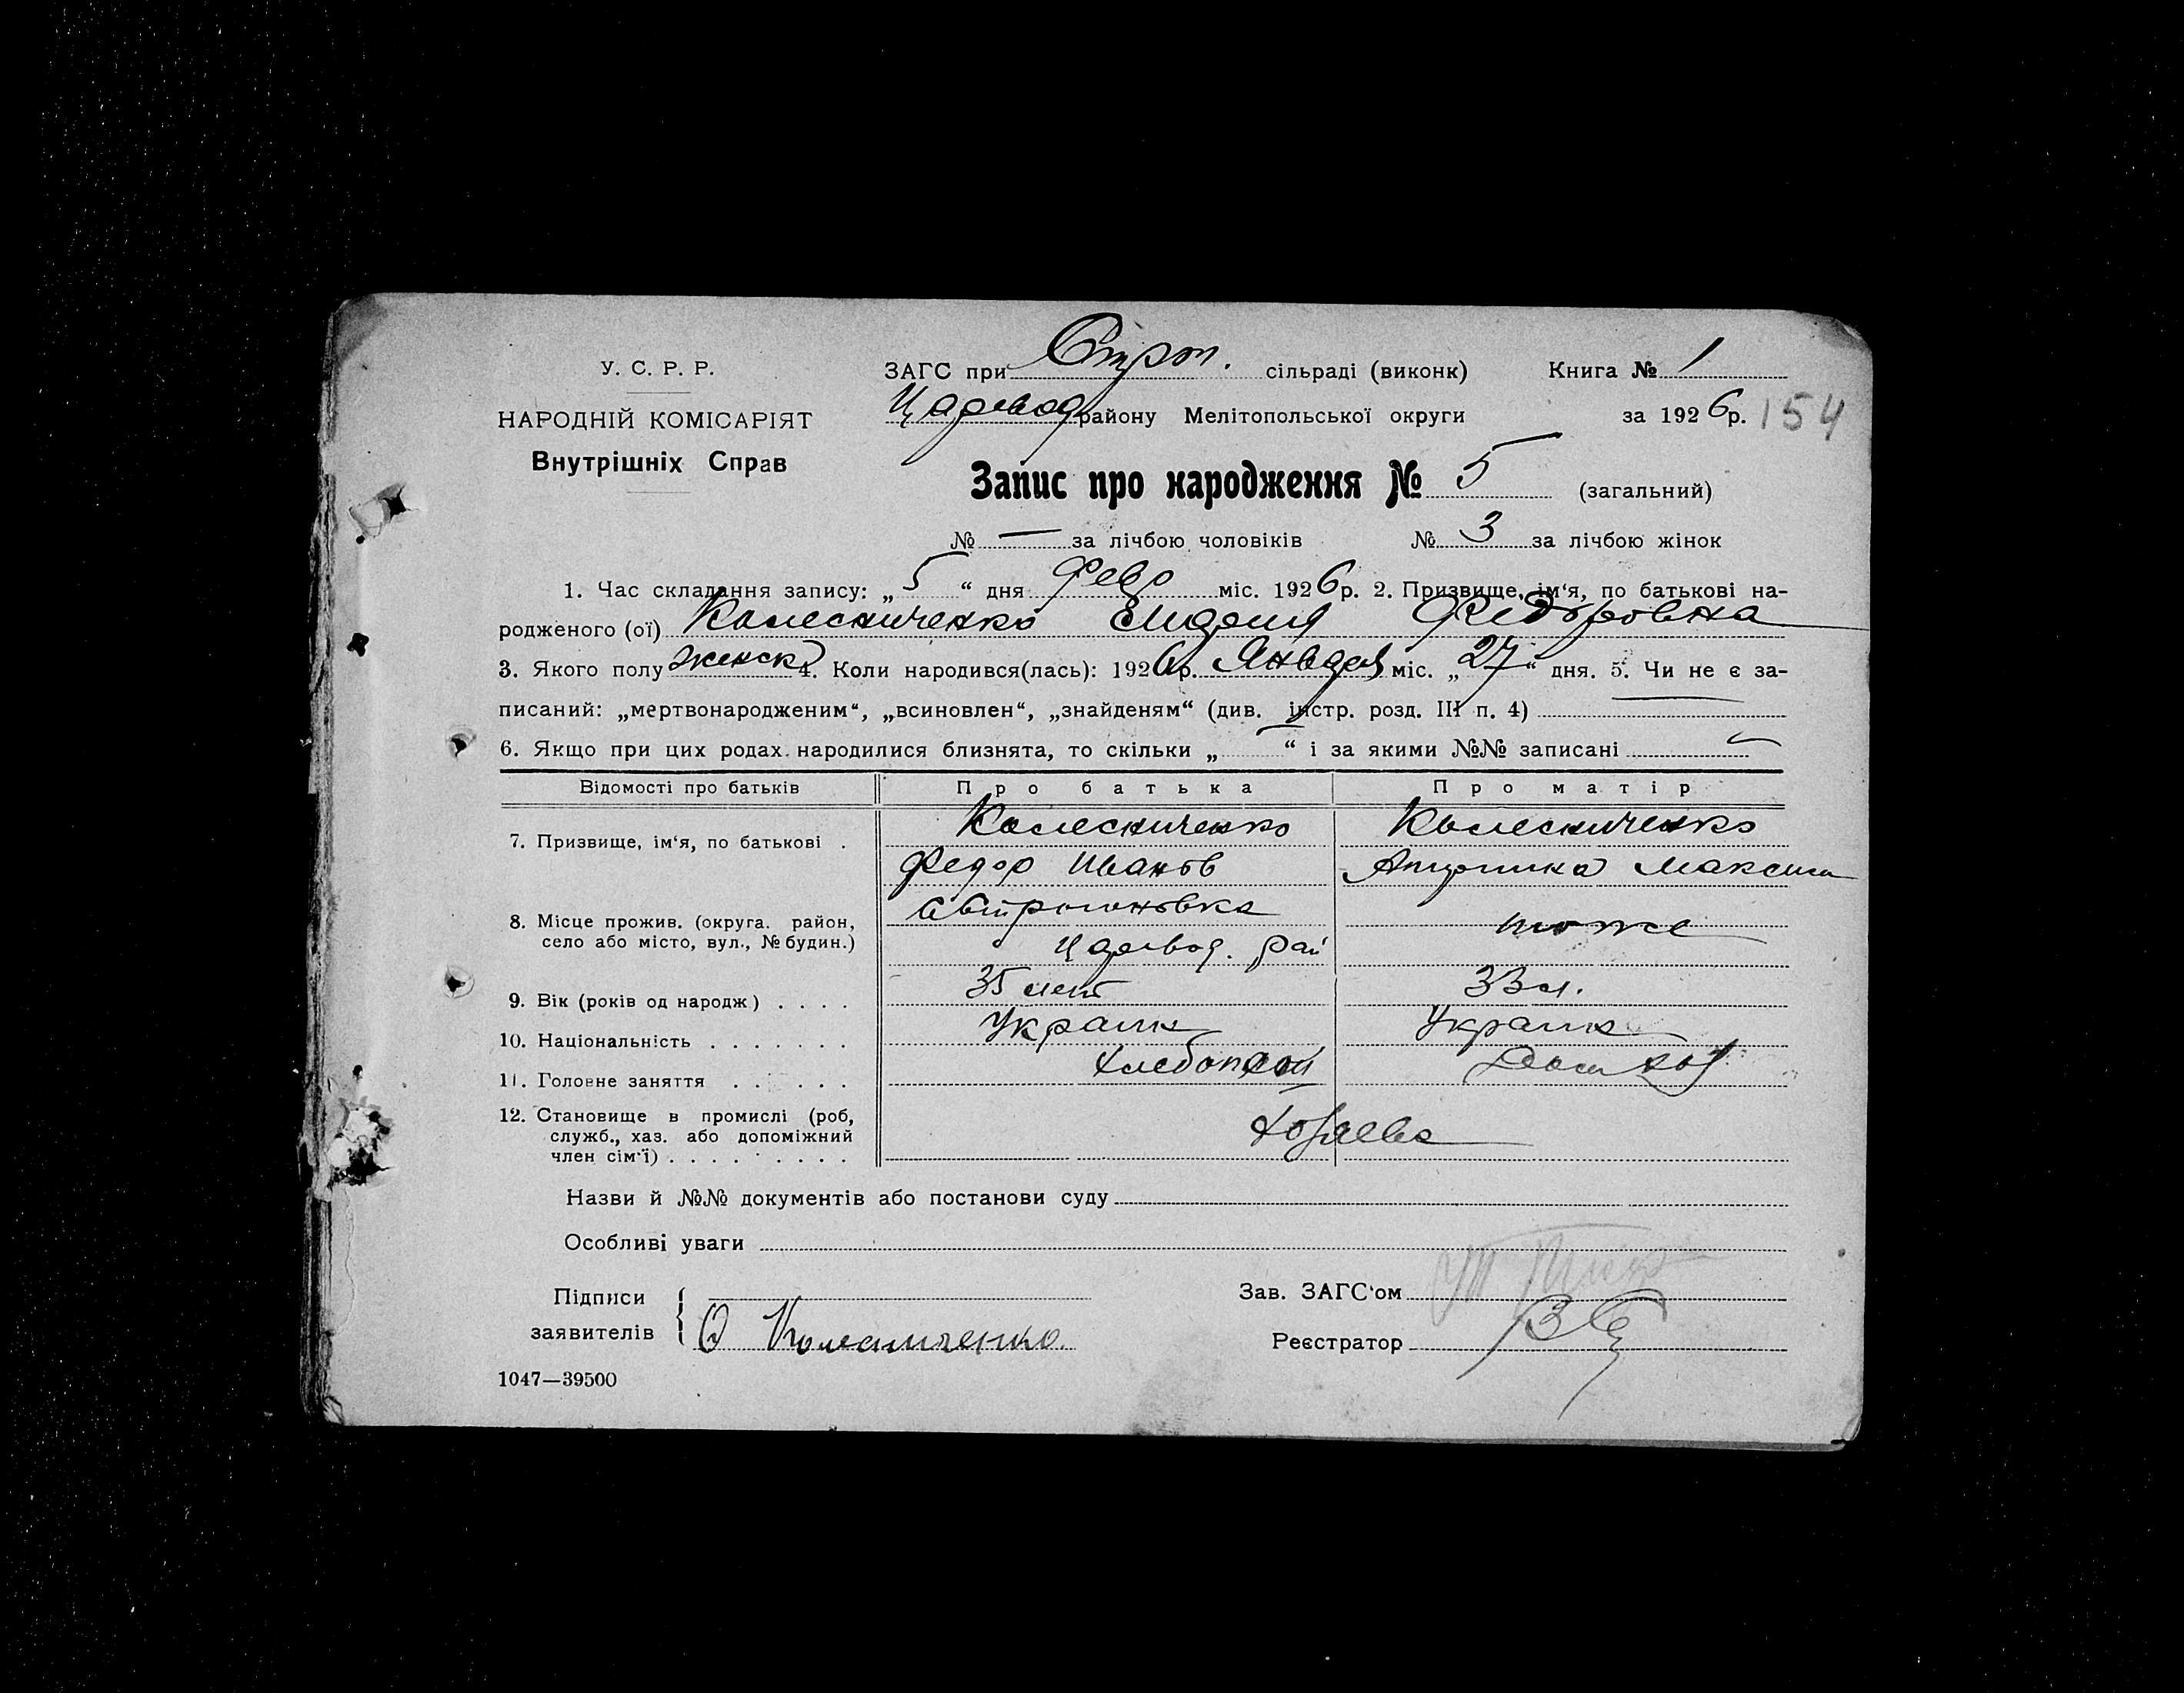 У. С. Р. Р.
НАРОДНІЙ КОМІСАРІЯТ
Внутрішніх Справ
ЗАГС при Строг. сільраді (виконк) Книга № 1
Царевод району Мелітопольської округи за 1926 р. 154
Запис про народження № 5 (загальний)
№ — за лічбою чоловіків № 3 за лічбою жінок
1. Час складання запису: „5“ дня Февр міс. 1926 р. 2. Призвище, ім'я, по батькові на-
родженого (ої) Колесниченко Федоровна
3. Якого полу женск 4. Коли народився(лась): 1926 р. Января міс. „27“ дня. 5. Чи не є за-
писаний: „мертвонародженим“, „всиновлен“, „знайденям“ (див. інстр. розд. III п. 4) —
6. Якщо при цих родах народилися близнята, то скільки „—“ і за якими №№ записані —
Відомості про батьків Про батька Про матір
7. Призвище, ім'я, по батькові . Колесниченко Колесниченко
Федор Иванов Максим
8. Місце прожив. (округа. район, село або місто, вул., № будин.) тоже
Царевод. рай
9. Вік (років од народж) . . . . 35 лет 33 л.
10. Національність . . . . . . . Украин Украин
11. Головне заняття . . . . . . Хлебопаш Дом хоз
12. Становище в промислі (роб,
служб., хаз. або допоміжний
член сім'ї) . . . . . . . . . Хозяева
Назви й №№ документів або постанови суду
Особливі уваги
Підписи
заявителів Колесниченко.
Зав. ЗАГС'ом
Реєстратор
1047—39500